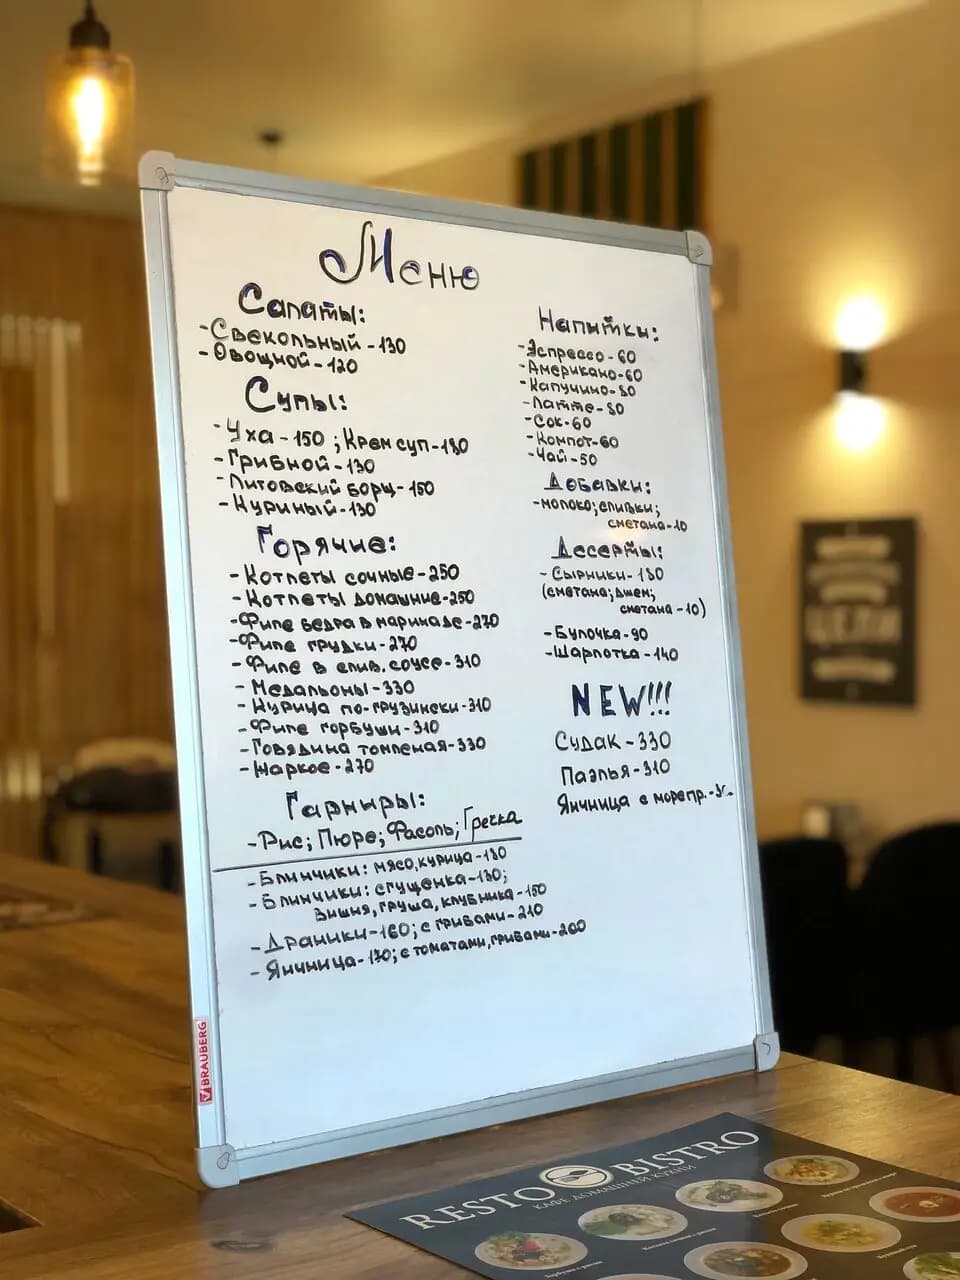 Меню
Салаты:
-Свекольный-130
-Овощной-120
Супы:
-Уха-150; Крем суп-180
-Грибной-130
-Литовский борщ-150
-Куриный-130
Горячие:
-Котлеты сочные-250
-Котлеты домашние-250
-Филе бедра в маринаде-270
-Филе грудки-270
-Филе в слив. соусе-310
-Медальоны-330
-Курица по-грузински-310
-Филе горбуши-310
-Говядина томленая-330
-Жаркое-270
Гарниры:
-Рис; Пюре; Фасоль; Гречка
-Блинчики: мясо, курица-180
-Блинчики: сгущенка-130;
вишня, груша, клубника-150
-Драники-160; с грибами-210
-Яичница-170; с томатами, грибами-200
Напитки:
-Эспрессо-60
-Американо-60
-Капучино-80
-Латте-80
-Сок-60
-Компот-60
-Чай-50
Добавки:
-молоко; сливки;
сметана-10
Десерты:
-Сырники-180
(сметана; джем;
сметана-10)
-Булочка-90
-Шарлотка-140
NEW!!!
Судак-330
Паэлья-310
Яичница с морепр.-
BRAUBERG
ЦЕЛИ
RESTO BISTRO
КАФЕ ДОМАШНЕЙ КУХНИ